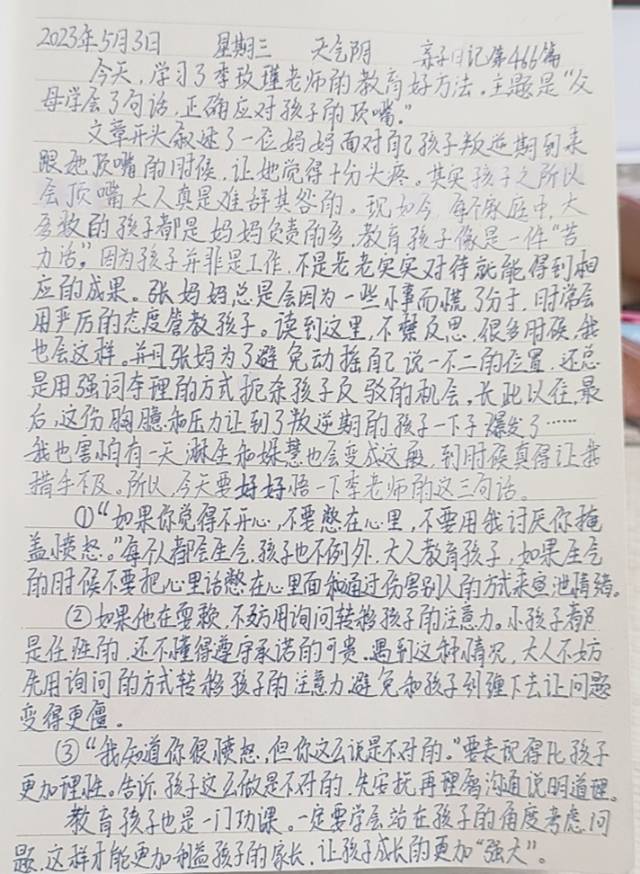 2023年5月3日 星期三 天气阴 亲子日记第466篇
今天,学习了李玫瑾老师的教育好方法。主题是“父
母学会了句话,正确应对孩子的顶嘴。”
文章开头叙述了一位妈妈面对自己孩子叛逆期到来
跟她顶嘴的时候,让她觉得十分头疼。其实孩子之所以
会顶嘴大人真是难辞其咎的。现如今,每个家庭中,大
多数的孩子都是妈妈负责的多,教育孩子像是一件“苦
力活”,因为孩子并非是工作,不是老老实实对待就能得到相
应的成果。张妈妈总是会因为一些小事而慌了分寸,时常会
用严厉的态度管教孩子。读到这里,不禁反思,很多时候,我
也会这样。并且张妈为了避免动摇自己说一不二的位置,还总
是用强词夺理的方式扼杀孩子反驳的机会,长此以往,最
后,这份胸臆和压力让到了叛逆期的孩子一下子爆发了……
我也害怕有一天淋生和姝慧也会变成这般,到时候真得让我
措手不及。所以,今天要好好悟一下李老师的这三句话。
①“如果你觉得不开心,不要憋在心里,不要用我讨厌你掩
盖愤怒。”每个人都会生气,孩子也不例外,大人教育孩子,如果生气
的时候不要把心里话憋在心里面和通过伤害别人的方式来宣泄情绪。
②如果他在耍赖,不妨用询问转移孩子的注意力。小孩子都
是任性的,还不懂得遵守承诺的可贵。遇到这种情况,大人不妨
先用询问的方式转移孩子的注意力避免和孩子到僵下去让问题
变得更僵。
③“我知道你很愤怒,但你这么说是不对的。”要表现得比孩子
更加理性。告诉孩子这么做是不对的,先安抚再理解沟通说明道理。
教育孩子也是一门功课。一定要学会站在孩子的角度考虑问
题,这样才能更加利益孩子的家长,让孩子成长的更加“强大”。